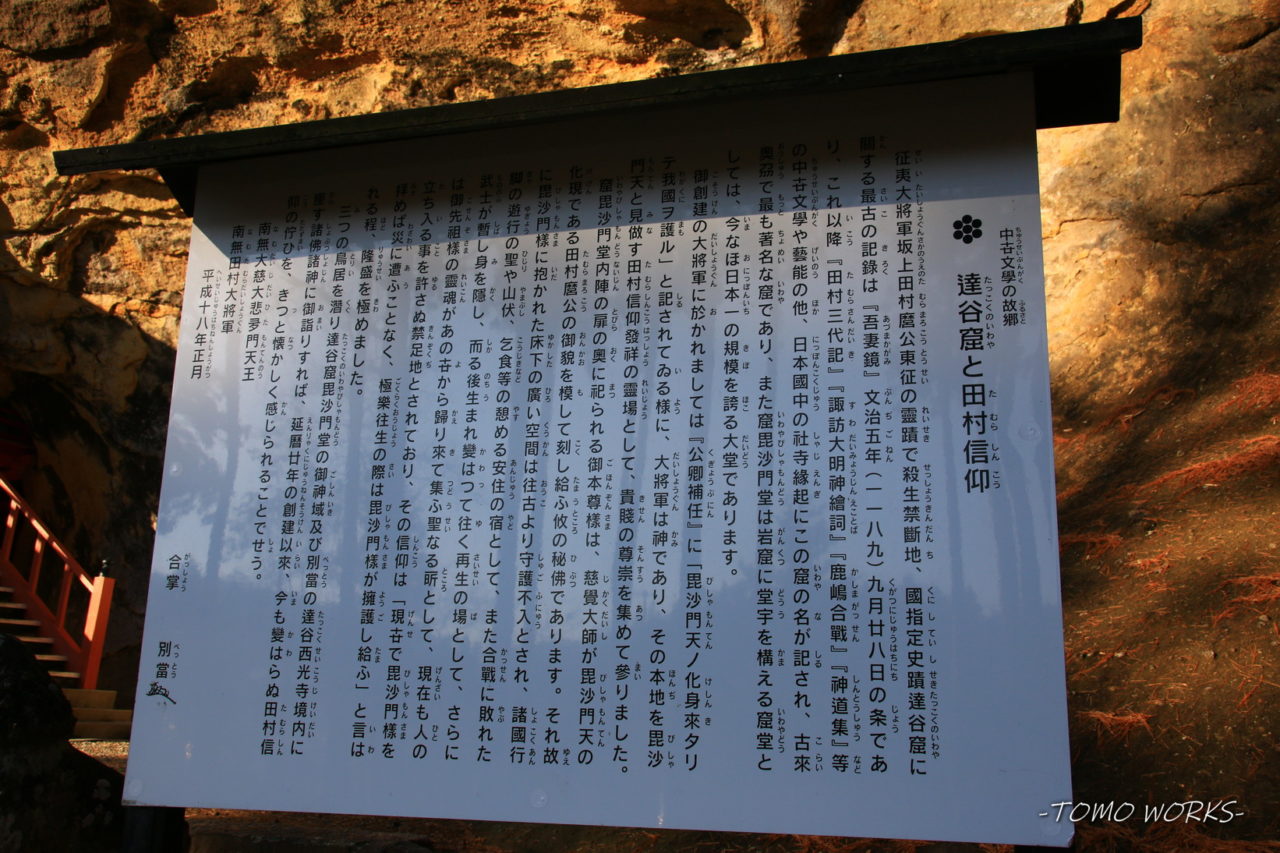 中古文學の故郷
達谷窟と田村信仰
征夷大將軍坂上田村麿公東征の靈蹟で殺生禁斷地、國指定史蹟達谷窟に
關する最古の記錄は『吾妻鏡』文治五年（一一八九）九月廿八日の条であ
り、これ以降『田村三代記』『諏訪大明神繪詞』『鹿嶋合戰』『神道集』等
の中古文學や藝能の他、日本國中の社寺緣起にこの窟の名が記され、古來
奥刕で最も著名な窟であり、また窟毘沙門堂は岩窟に堂宇を構える窟堂と
しては、今なほ日本一の規模を誇る大堂であります。
御創建の大將軍に於かれましては『公卿補任』に「毘沙門天ノ化身來タリ
テ我國ヲ護ル」と記されてゐる様に、大將軍は神であり、その本地を毘沙
門天と見做す田村信仰發祥の靈場として、貴賤の尊崇を集めて參りました。
窟毘沙門堂內陣の扉の奥に祀られる御本尊様は、慈覺大師が毘沙門天の
化現である田村麿公の御貌を模して刻し給ふ攸の秘佛であります。それ故
に毘沙門様に抱かれた床下の廣い空間は往古より守護不入とされ、諸國行
脚の遊行の聖や山伏、乞食等の憩める安住の宿として、また合戰に敗れた
武士が暫し身を隱し、而る後生まれ變はつて往く再生の場として、さらに
は御先祖様の靈魂があの卋から歸り來て集ふ聖なる所として、現在も人の
立ち入る事を許さぬ禁足地とされており、その信仰は「現卋で毘沙門様を
拝めば災に遭ふことなく、極樂往生の際は毘沙門様が擁護し給ふ」と言は
れる程、隆盛を極めました。
三つの鳥居を潛り達谷窟毘沙門堂の御神域及び別當の達谷西光寺境内に
座す諸佛諸神に御詣りすれば、延曆廿年の創建以來、今も變はらぬ田村信
仰の佇ひを、きつと懷かしく感じられることでせう。
南無大慈大悲夛門天王
南無田村大將軍
平成十八年正月
合掌　別當
-TOMO WORKS-